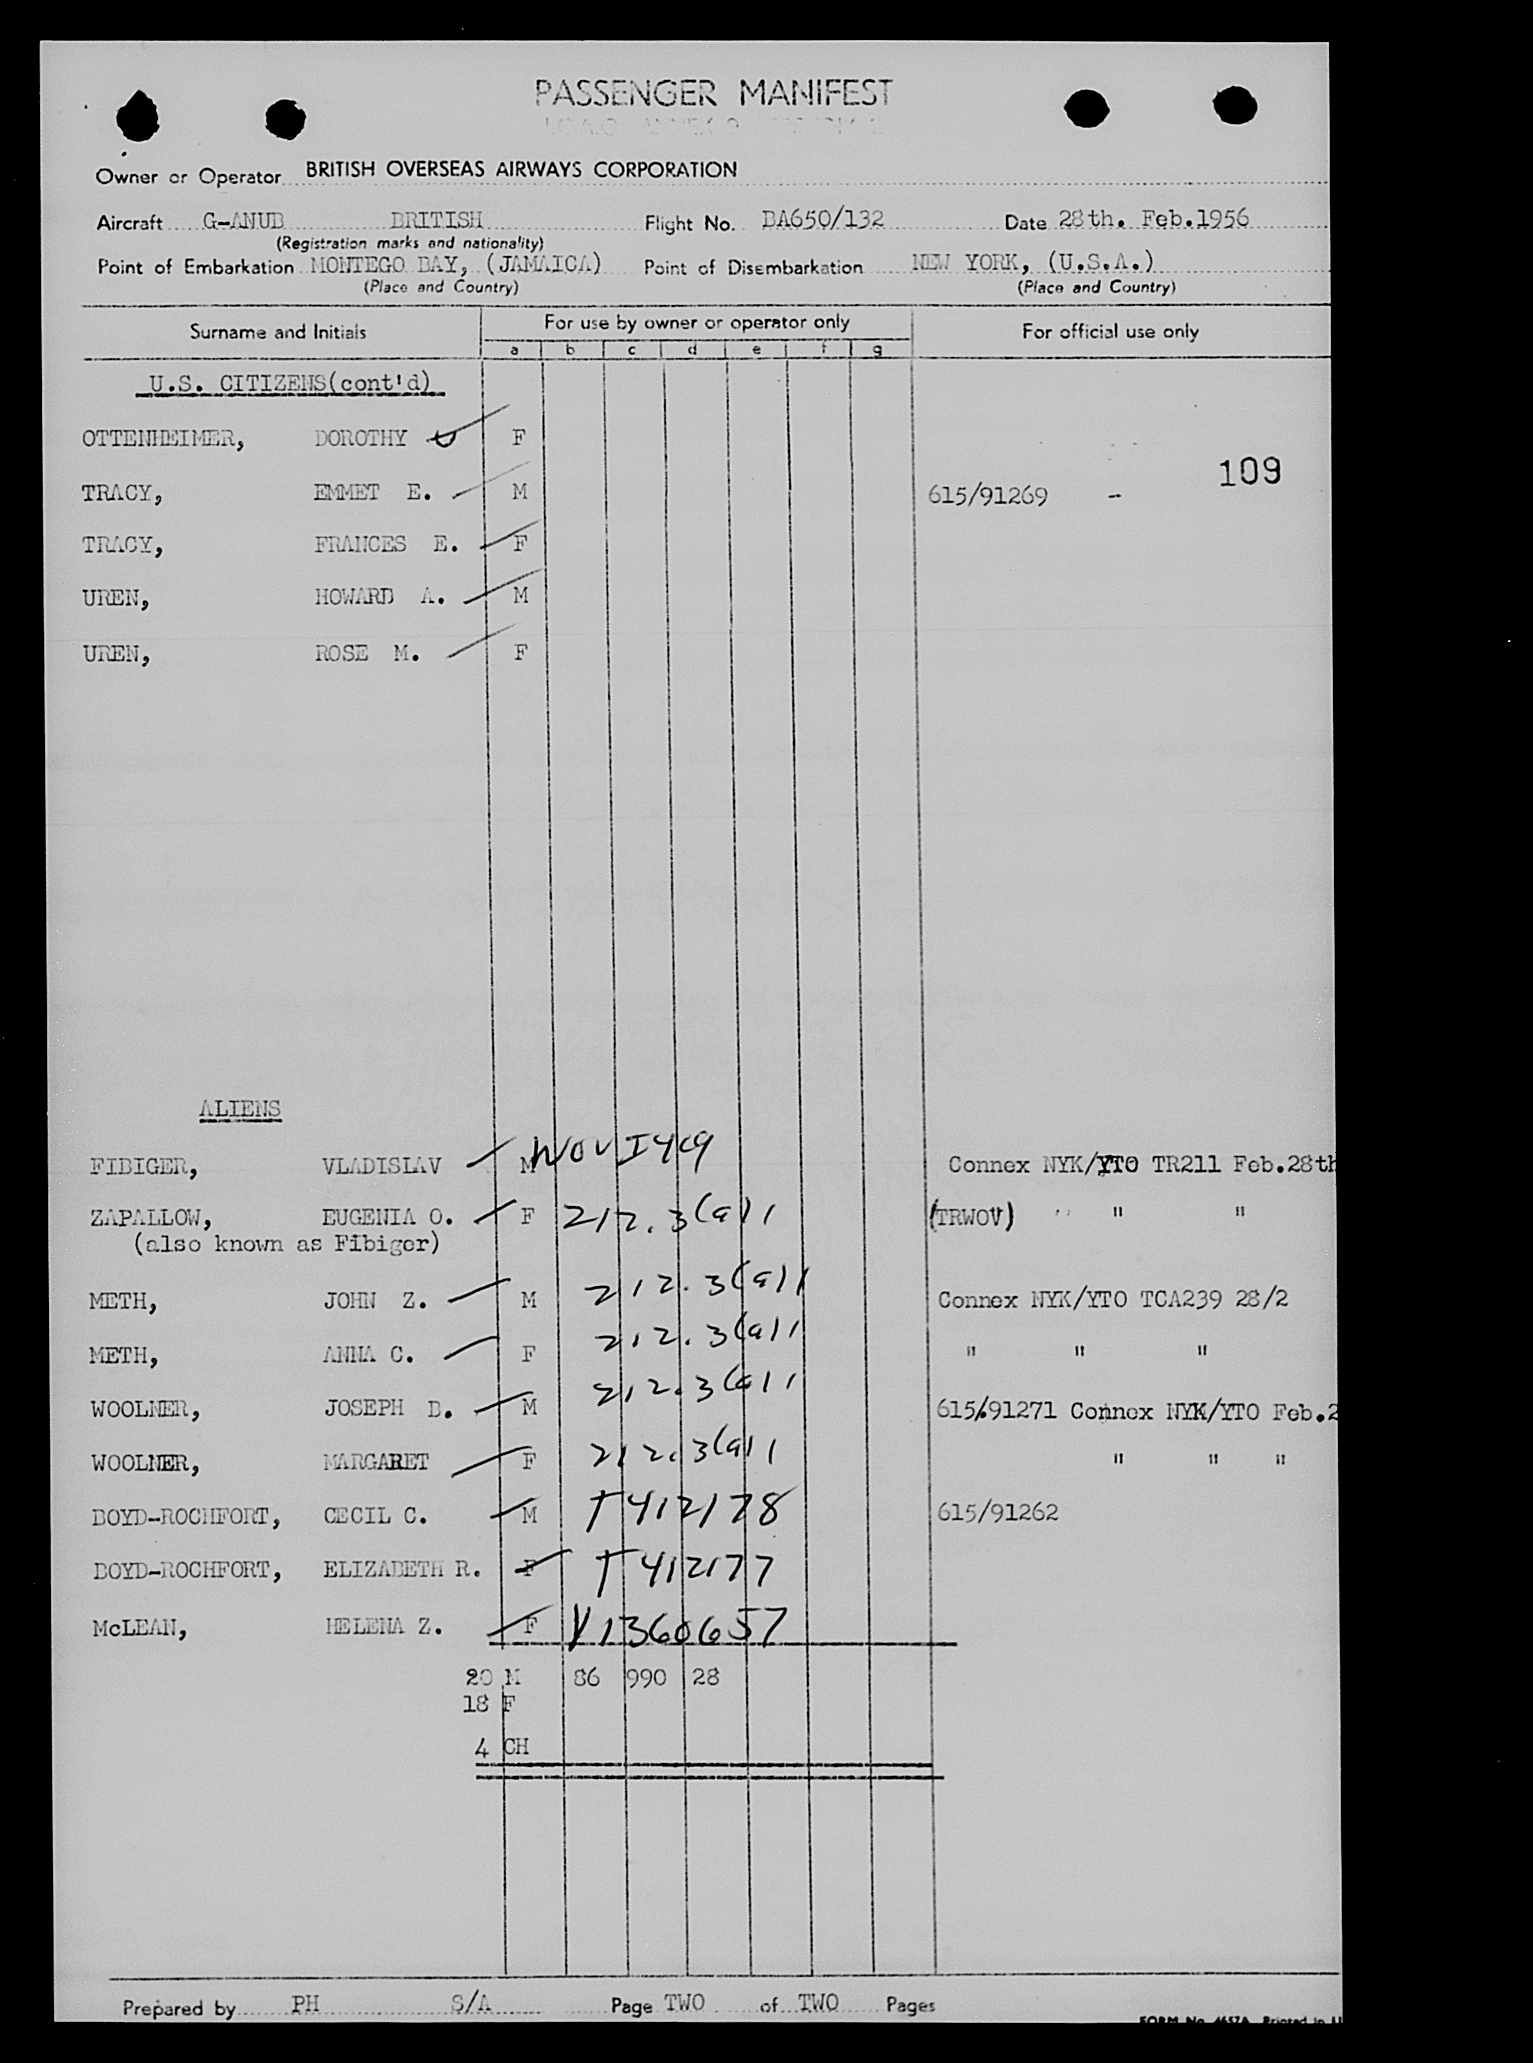 PASSENGER MANIFEST
Owner or Operator BRITISH OVERSEAS AIRWAYS CORPORATION
Aircraft G-ANUB BRITISH Flight No. BA650/132 Date 28th. Feb.1956
(Registration marks and nationality)
Point of Embarkation MONTEGO BAY, (JAMAICA) Point of Disembarkation NEW YORK, (U.S.A.)
(Place and Country) (Place and Country)
Surname and Initials For use by owner or operator only For official use only
a b c d e f g
U.S. CITIZENS(cont'd)
OTTENHEIMER, DOROTHY F
109
TRACY, EMMET E. M 615/91269 -
TRACY, FRANCES E. F
UREN, HOWARD A. M
UREN, ROSE M. F
ALIENS
FIBIGER, VLADISLAV M WOV I449 Connex NYK/YTO TR211 Feb.28th
ZAPALLOW, EUGENIA O. F 212.3(a)1 (TRWOV) " " "
(also known as Fibiger)
METH, JOHN Z. M 212.3(a)1 Connex NYK/YTO TCA239 28/2
METH, ANNA C. F 212.3(a)1 " " "
WOOLNER, JOSEPH B. M 212.3(a)1 615/91271 Connex NYK/YTO Feb.2
WOOLNER, MARGARET F 212.3(a)1 " " "
BOYD-ROCHFORT, CECIL C. M T412178 615/91262
BOYD-ROCHFORT, ELIZABETH R. F T412177
McLEAN, HELENA Z. F V1360657
20 M 86 990 28
18 F
4 CH
Prepared by PH S/A Page TWO of TWO Pages
FORM No. 4657A Printed in U